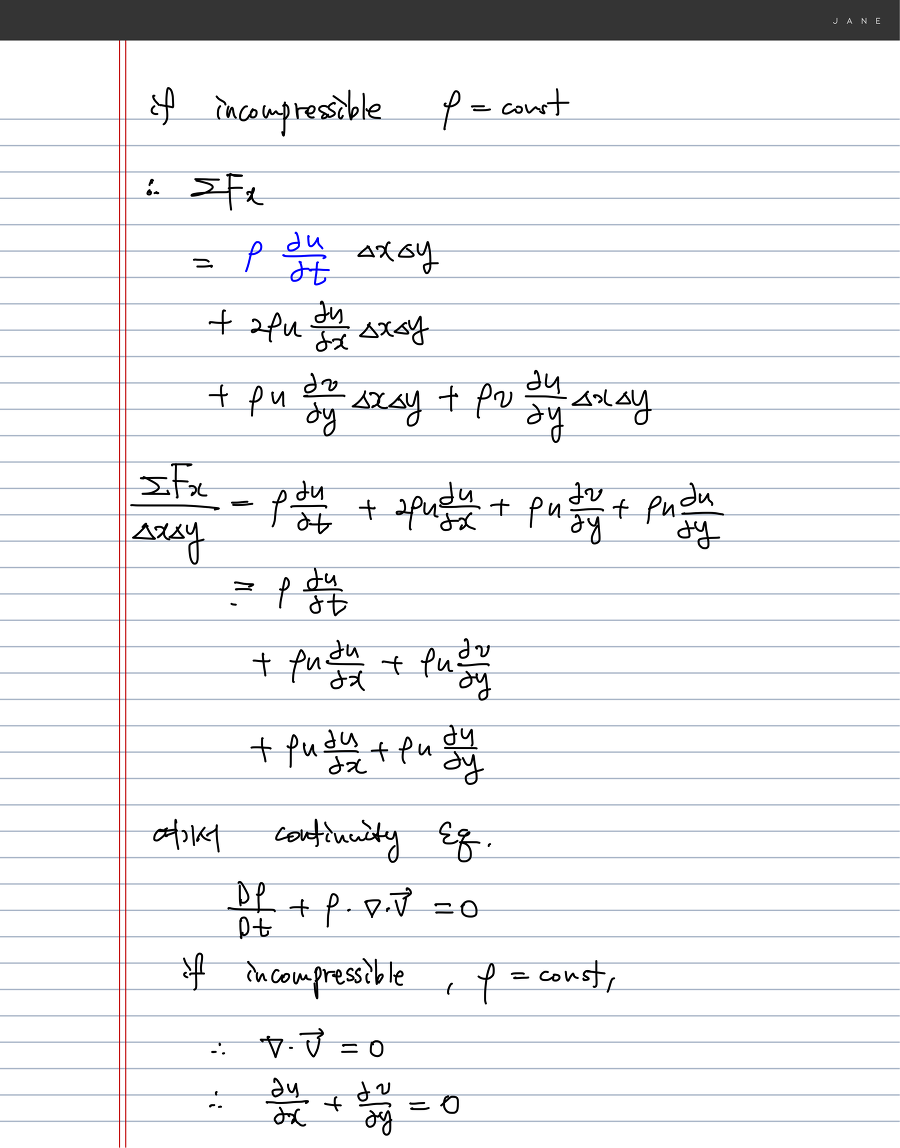 JANE
if incompressible ρ = const
∴ ΣFx
= ρ ∂u/∂t ΔxΔy
+ 2ρu ∂u/∂x ΔxΔy
+ ρu ∂v/∂y ΔxΔy + ρv ∂u/∂y ΔxΔy
ΣFx/ΔxΔy = ρ ∂u/∂t + 2ρu ∂u/∂x + ρu ∂v/∂y + ρu ∂u/∂y
= ρ ∂u/∂t
+ ρu ∂u/∂x + ρu ∂v/∂y
+ ρu ∂u/∂x + ρu ∂u/∂y
여기서 continuity Eq.
Dρ/Dt + ρ · ∇·V⃗ = 0
if incompressible, ρ = const,
∴ ∇·V⃗ = 0
∴ ∂u/∂x + ∂v/∂y = 0